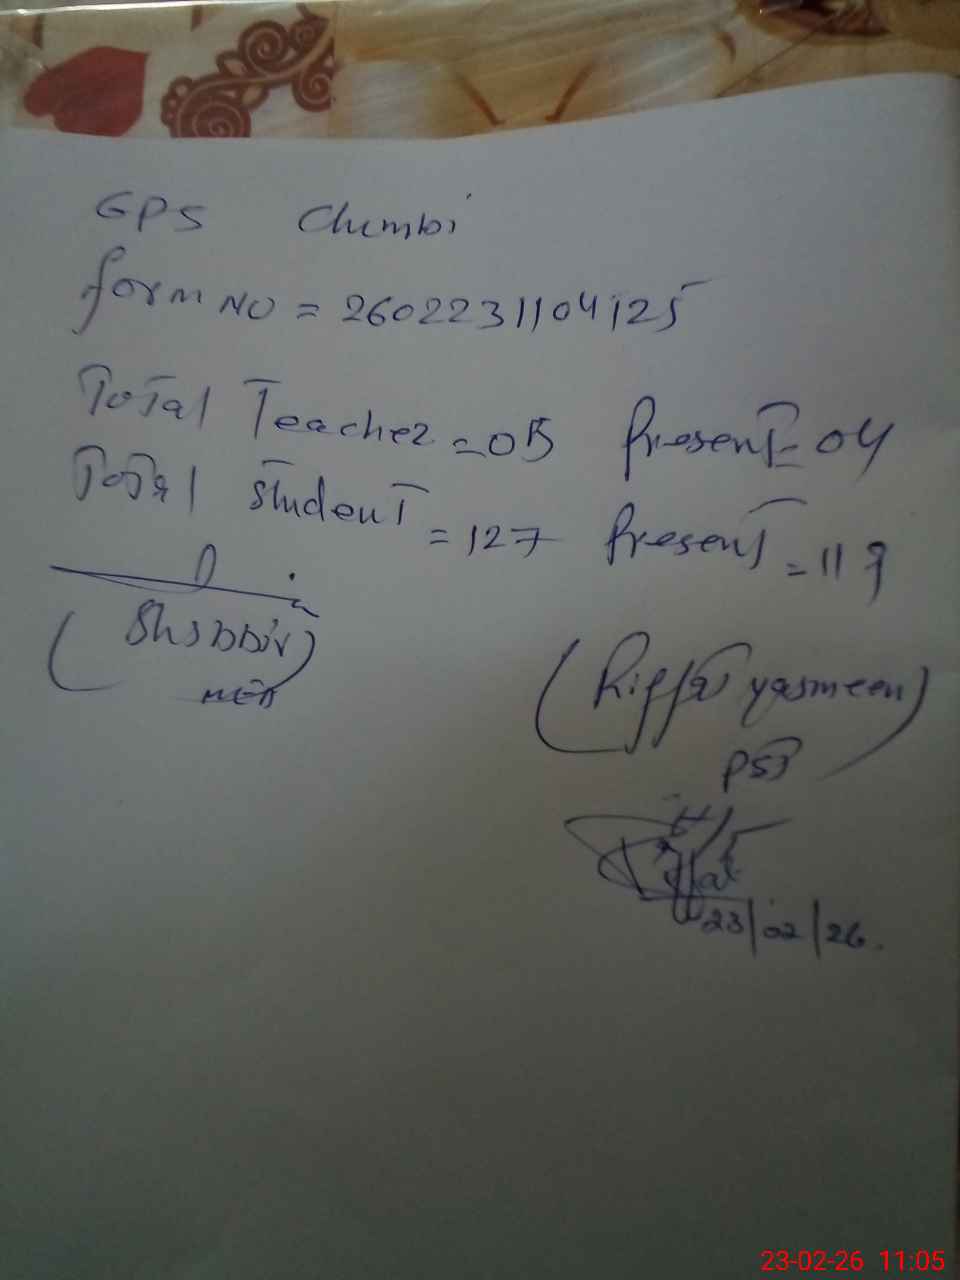 GPS Chumbi
form NO = 2602231104125
Total Teacher = 05 Present = 04
Total student = 127 Present = 119
(Shabbir)
MEA
(Riffat yasmeen)
PST
Riffat
23/02/26.
23-02-26 11:05